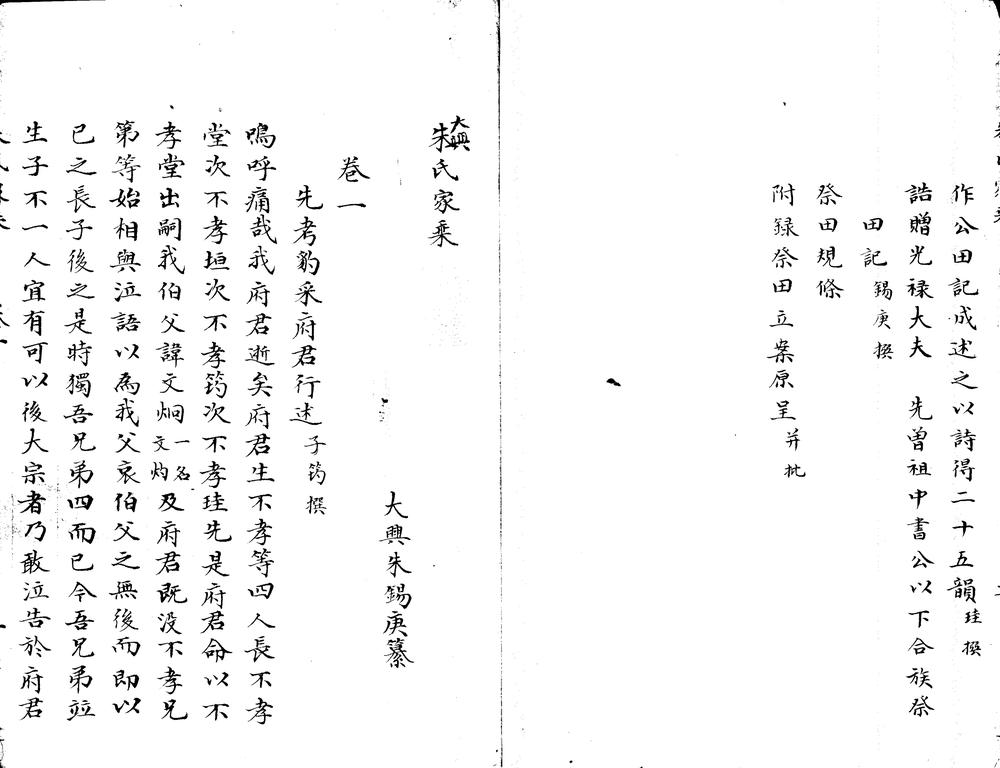 作公田記成述之以詩得二十五韻珪撰
誥贈光祿大夫　先曾祖中書公以下合族祭
田記錫庚撰
祭田規條
附録祭田立案原呈并批
大興朱氏家乘
卷一
大興朱錫庚纂
先考豹采府君行述子筠撰
嗚呼痛哉我府君逝矣府君生不孝等四人長不孝
堂次不孝垣次不孝筠次不孝珪先是府君命以不
孝堂出嗣我伯父諱文炯一名文灼及府君既没不孝兄
第等始相與泣語以為我父哀伯父之無後而即以
已之長子後之是時獨吾兄弟四而已今吾兄弟竝
生子不一人宜有可以後大宗者乃敢泣告於府君